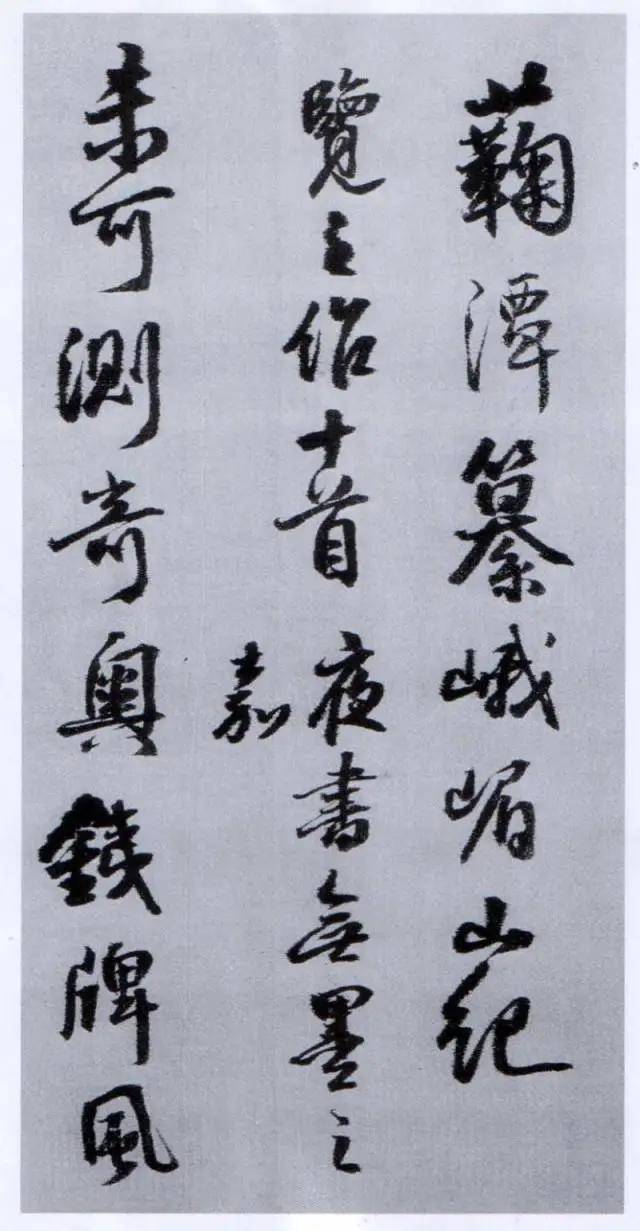 蘜潭纂峨嵋山紀
覽之作十首 夜書無墨之
嘉
未可測奇奧牌風